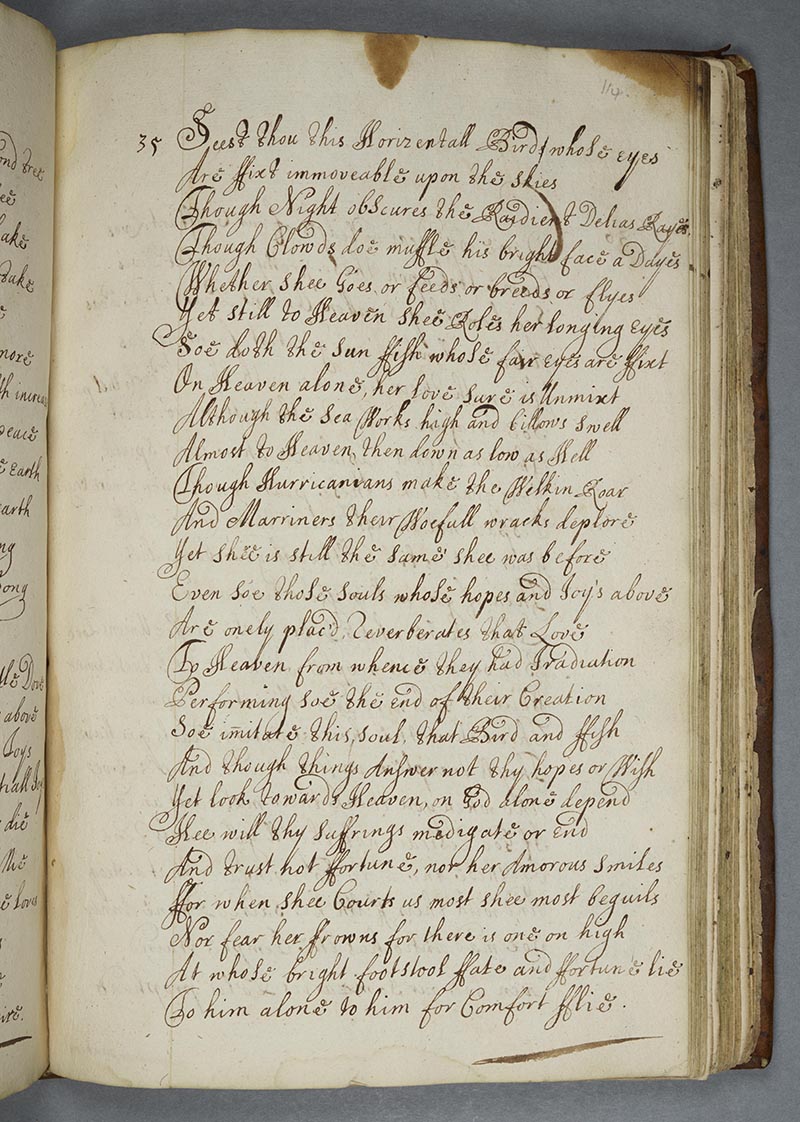 114.
35 Seest thou this Horizentall Bird, whose eyes
Are ffixt immoveable upon the skies
Though Night obscures the Raidient Delias Rayes
Though Clowds doe muffle his bright face a Dayes
Whether shee Goes or feeds or breeds or flyes
Yet still to Heaven shee Roles her longing eyes
Soe doth the sun ffish whose fair eyes are ffixt
On Heaven alone, her love sure is Unmixt
Although the sea Works high and billows swell
Almost to Heaven, then down as low as Hell
Though Hurricanians make the Welkin Roar
And Marriners their Woefull wracks deplore
Yet shee is still the same shee was before
Even soe those souls whose hopes and Joy's above
Are onely plac'd, Reverberates that Love
To Heaven from whence they had Iradiation
Performing soe the end of their Creation
Soe imitate this, soul, that Bird and ffish
And though things Answer not thy hopes or Wish
Yet look towards Heaven, on God alone depend
Hee will thy suffrings medigate or end
And trust not ffortune, nor her Amorous smiles
ffor when shee Courts us most shee most beguils
Nor fear her ffrowns for there is one on high
At whose bright footstool ffate and ffortune lie
To him alone to him for Comfort fflie.
ond tree
ee
ake
take
more
th increas
peace
e earth
earth
ng
ong
tle Dove
above
Joys
tiall Joy
die
Me
e love
ire.